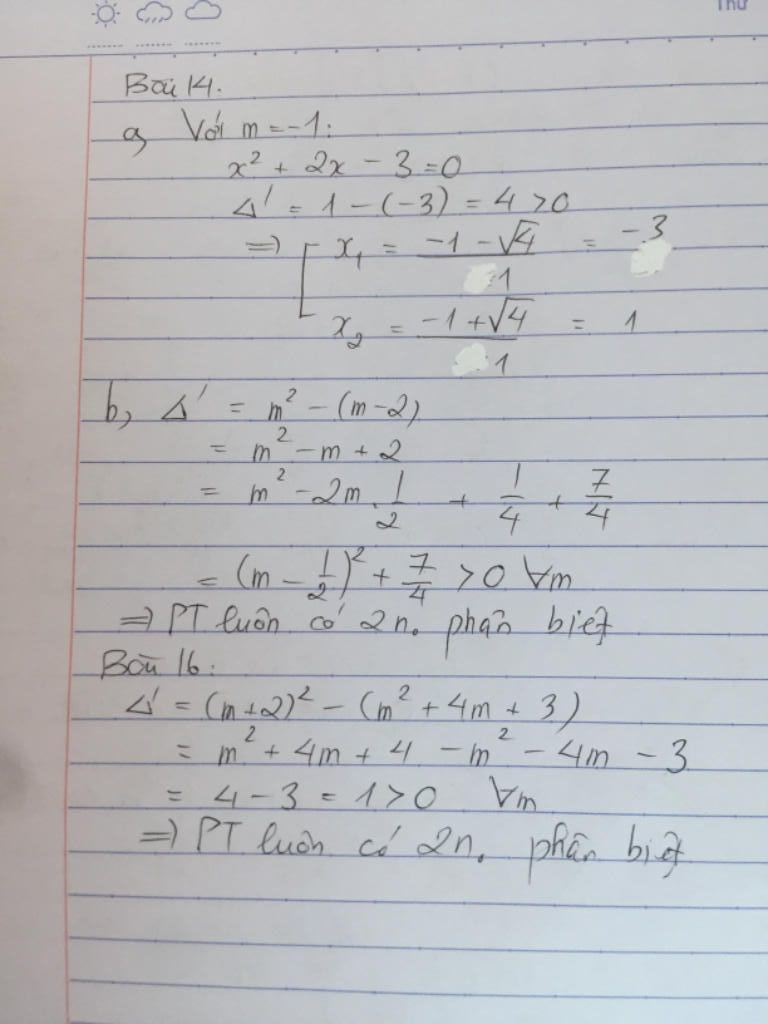 Thứ
Bài 14.
a, Với m = -1:
x² + 2x - 3 = 0
Δ' = 1 - (-3) = 4 > 0
=> [ x₁ = (-1 - √4)/1 = -3
x₂ = (-1 + √4)/1 = 1
b, Δ' = m² - (m - 2)
= m² - m + 2
= m² - 2m . 1/2 + 1/4 + 7/4
= (m - 1/2)² + 7/4 > 0 ∀m
=> PT luôn có 2n. phân biệt
Bài 16:
Δ' = (m + 2)² - (m² + 4m + 3)
= m² + 4m + 4 - m² - 4m - 3
= 4 - 3 = 1 > 0 ∀m
=> PT luôn có 2n. phân biệt